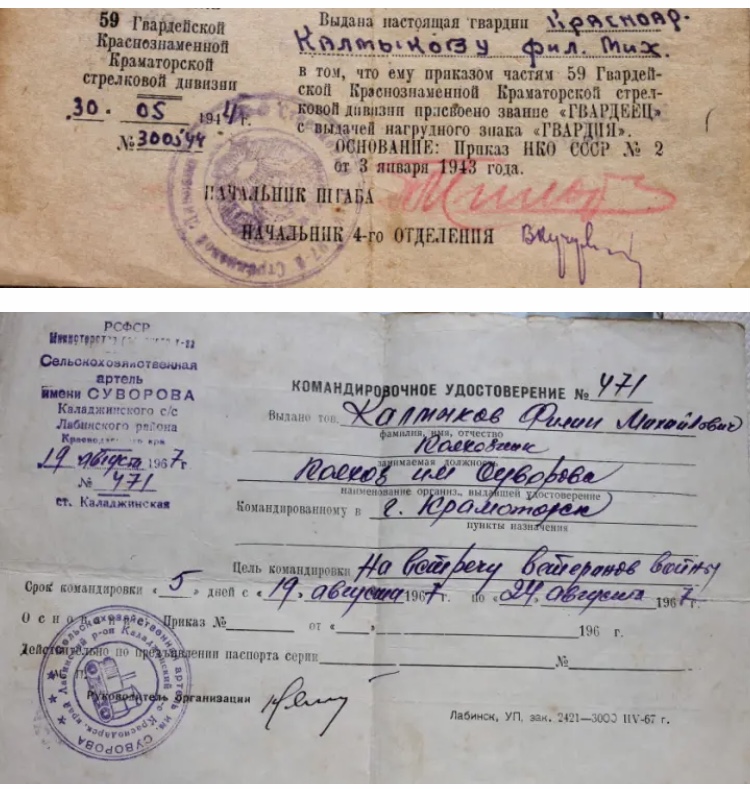 59 Гвардейской
Краснознаменной
Краматорской
стрелковой дивизии
30. 05 1944 г.
№ 300544
Выдана настоящая гвардии Красноар.
Калмыкову Фил. Мих.
в том, что ему приказом частям 59 Гвардей-
ской Краснознаменной Краматорской стрел-
ковой дивизии присвоено звание «ГВАРДЕЕЦ»
с выдачей нагрудного знака «ГВАРДИЯ».
ОСНОВАНИЕ: Приказ НКО СССР № 2
от 3 января 1943 года.
НАЧАЛЬНИК ШТАБА
НАЧАЛЬНИК 4-го ОТДЕЛЕНИЯ
РСФСР
Сельскохозяйственная
артель
имени СУВОРОВА
Каладжинского с/с
Лабинского района
19 августа 1967 г
№ 471
ст. Каладжинская
КОМАНДИРОВОЧНОЕ УДОСТОВЕРЕНИЕ № 471
Выдано тов. Калмыков Филип Михайлович
фамилия, имя, отчество
Колхозник
занимаемая должность
Колхоз им Суворова
наименование организ., выдавшей удостоверение
Командированному в г. Краматорск
пункты назначения
Цель командировки На встречу ветеранов войны
Срок командировки «5» дней с «19» августа 1967 г. по «24» августа 1967 г.
Основание: Приказ № от « » 196 г.
Действительно по предъявлении паспорта серии №
М. П.
Руководитель организации
Лабинск, УП, зак. 2421—3000 IV-67 г.